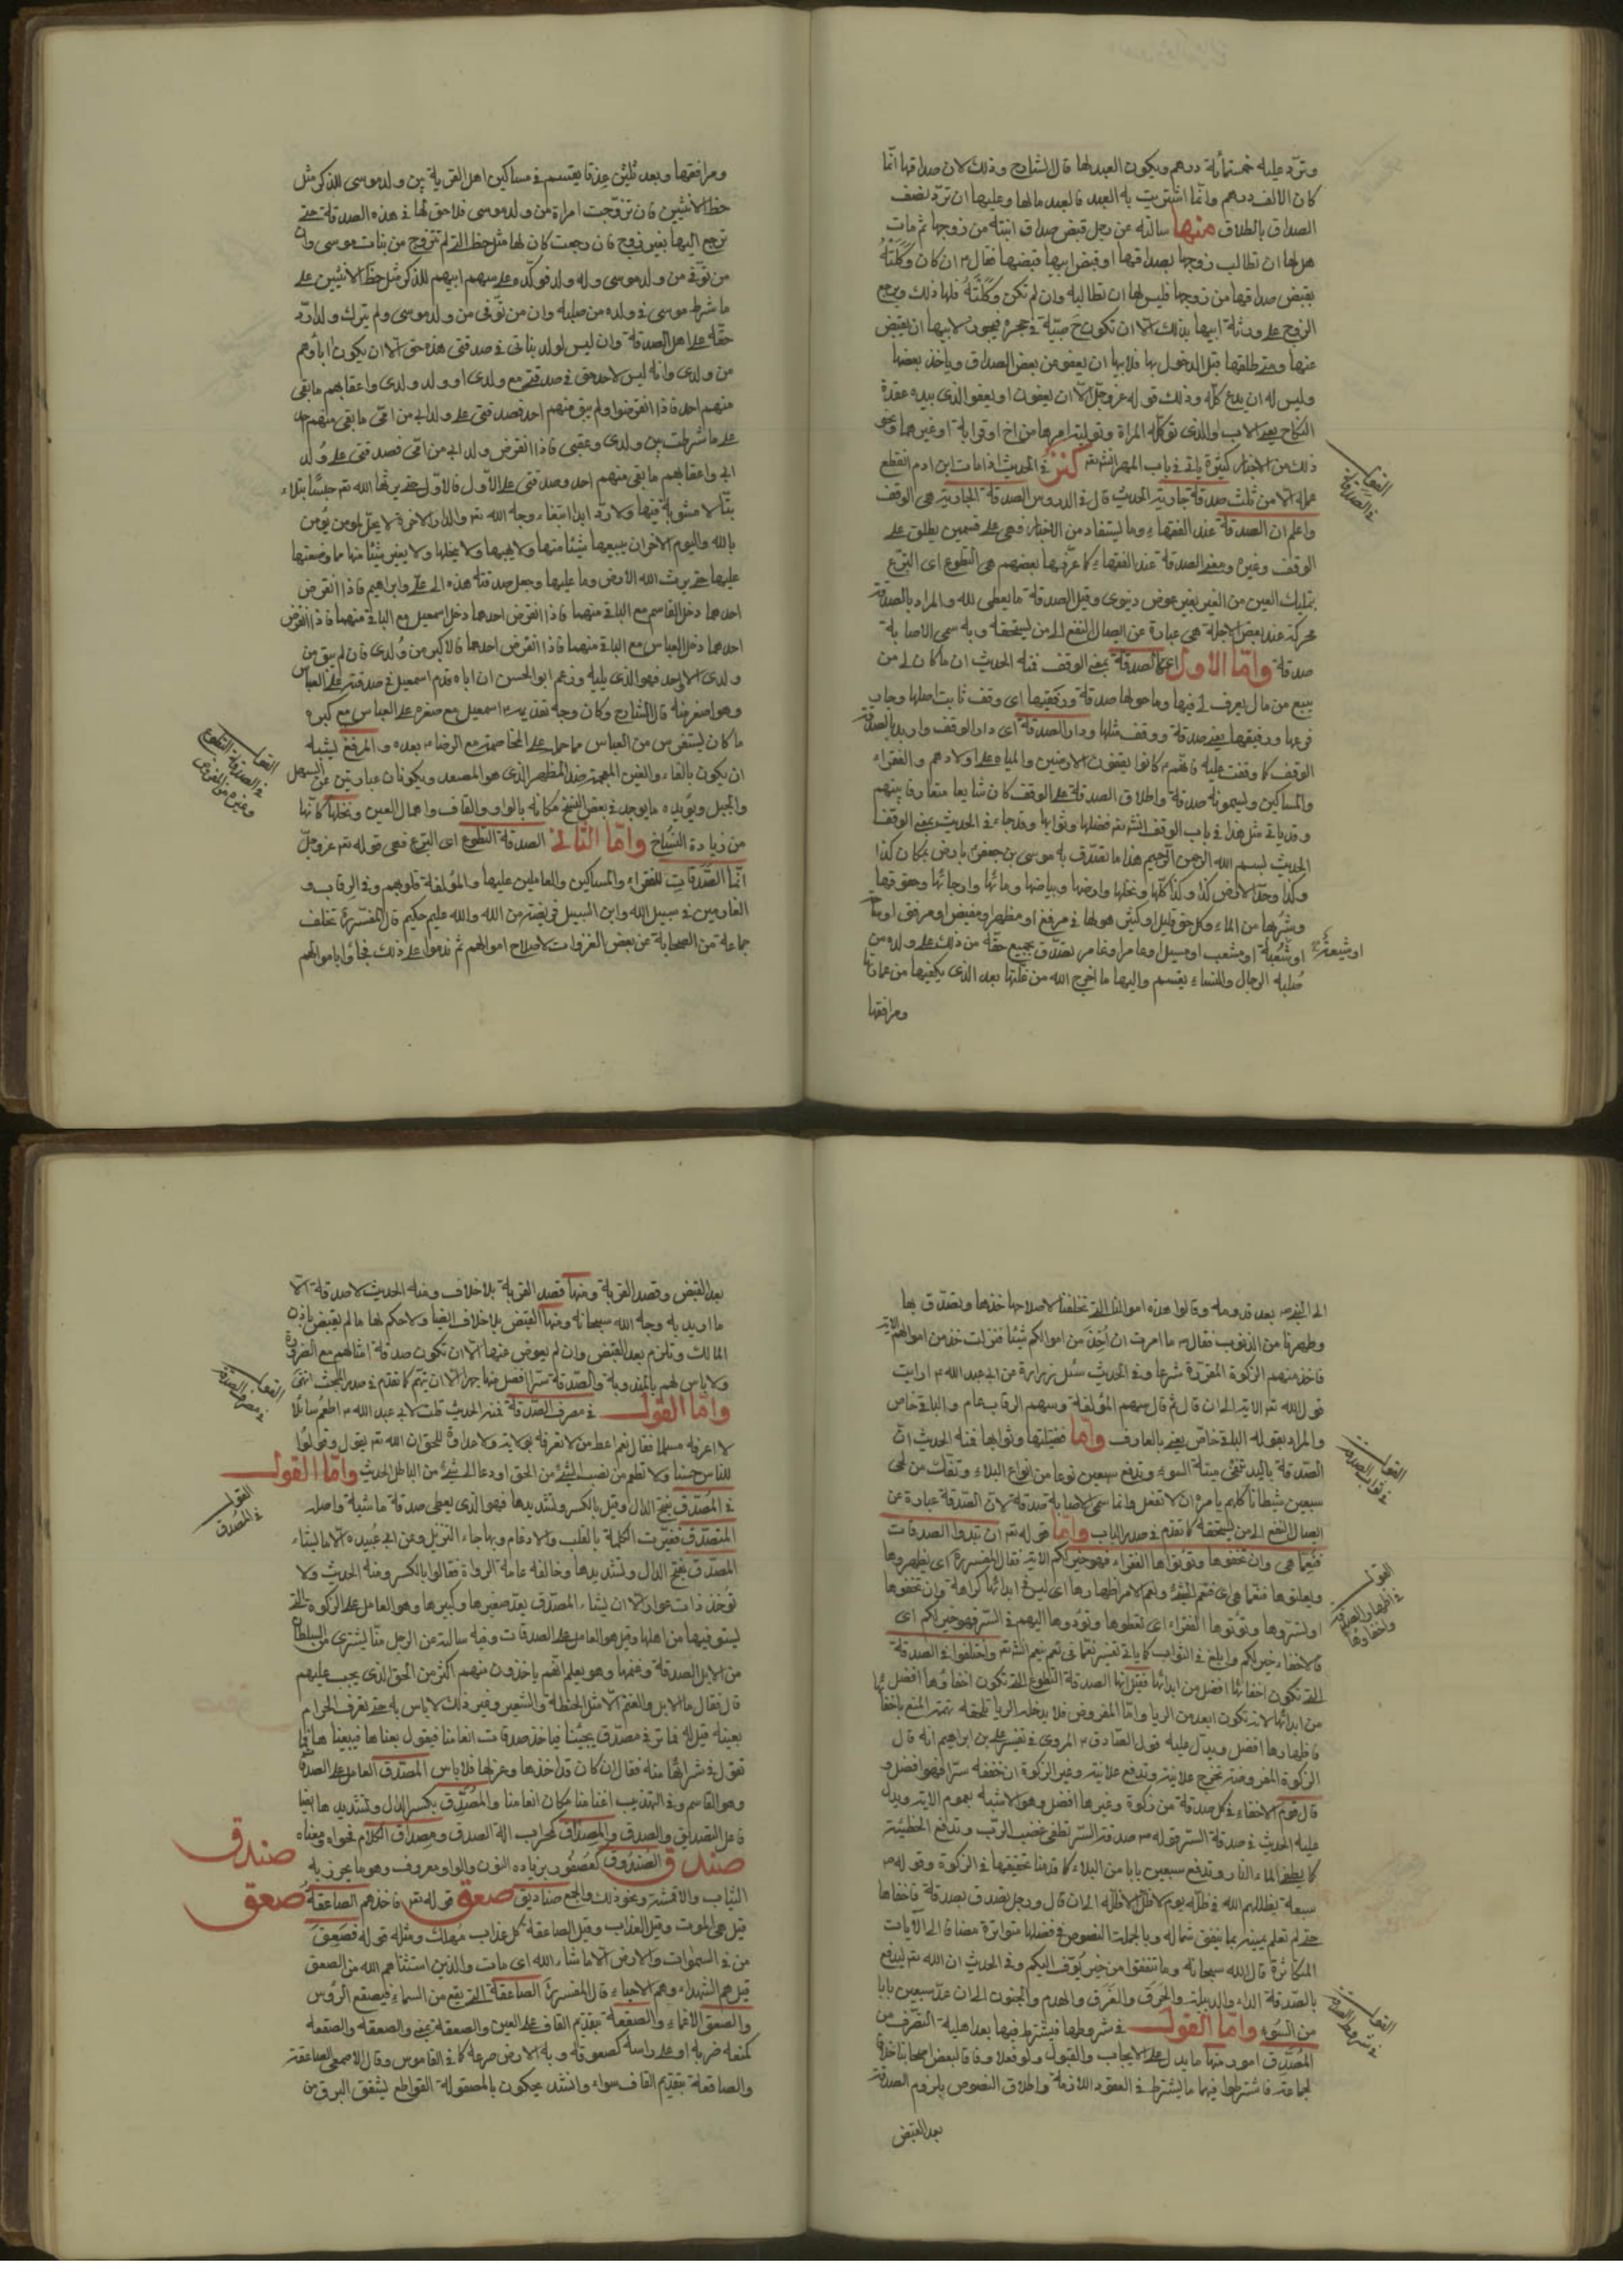 وتردّ عليه خمسمأئة درهم ويكون العبد لها قال الشارح وذلك لان صداقها انّما
كان الالف درهم وانّما اشتريت به العبد فالعبد مالها وعليها ان تردّ نصف
الصداق بالطلاق منها سالته عن رجل قبض صداق ابنته من زوجها ثم مات
هل لها ان تطالب زوجها بصداقها او قبض ابيها قبضها فقال ٤ ان كان وكّلته
بقبض صداقها من زوجها فليس لها ان تطالبه وان لم تكن وكّلته فلها ذلك ويرجع
الزوج على ورثة ابيها بذلك الا ان تكون ح صبيّة في حجره فيجوز لابيها ان يقبض
عنها ومتى طلقها قبل الدخول بها فلابيها ان يعفو من بعض الصداق وياخذ بعضها
وليس له ان يدع كلّه وذلك قوله عز وجلّ الّا ان يعفون او يعفو الذى بيده عقدة
النكاح يعنى الاب والذى توكّله المراة وتوليه امرها من اخ او قرابة او غيرهما ونحو
ذلك من الاخبار كثيرة ياتى في باب المهر انش تع كنز في الحديث اذا مات ابن ادم انقطع
عمله الا من ثلث صدقة جارية الحديث قال في الدروس الصدقة الجارية هى الوقف
القول في الصدقة
واعلم ان الصدقة عند الفقهاء وما يستفاد من الاخبار فهى على قسمين يطلق على
الوقف وغيره ومعنى الصدقة عند الفقهاء كما عرّفها بعضهم هى التطوع اى التبرّع
بتمليك العين من الغير بغير عوض دنيوى وقيل الصدقة ما يعطى لله والمراد بالصدقة
محركة عند بعض الاجلة هى عبارة عن ايصال النفع الى من يستحقه وبه سمى الاصابة
صدقة وامّا الاول اعنى الصدقة بمعنى الوقف فمنه الحديث ان ما كان لى من
ينبع من مال يعرف لى فيها وما حولها صدقة ورقيقها اى وقف ثابت اصلها وجاب
فرعها ورقيقها يعنى صدقة ووقف مثلها ودار الصدقة اى دار الوقف واريد بالصدقة
الوقف كما وقفت عليه فانهم ٤ كانوا يقفون الارضين والمياه على اولادهم والفقراء
والمساكين ويسمونه صدقة واطلاق الصدقة على الوقف كان شايعا متعارفا بينهم
وقد ياتى مثل هذا في باب الوقف انش تع فضلها وثوابها وقد جاء في الحديث بمعنى الوقف
الحديث بسم الله الرحمن الرحيم هذا ما تصدق به موسى بن جعفر ٤ بارض بمكان كذا
وكذا وحدّ الارض كذا وكذا كلّها ونخلها وارضها وبياضها ومائها وارجائها وحقوقها
وشربها من الماء وكل حق قليل او كثير هو لها في مرفع او مظهر او مغيض او مرفق او ساحة
او شعبة او مشعب او مسيل او عامر او غامر تصدّق بجميع حقّه من ذلك على ولده من
صلبه الرجال والنساء يقسم واليها ما اخرج الله من غلّتها بعد الذى يكفيها من عمارتها
ومرافقها
ومرافقها وبعد ثلثين عذقا يقسم في مساكين اهل القرية بين ولد موسى للذكر مثل
حظ الانثيين فان تزوّجت امراة من ولد موسى فلا حق لها في هذه الصدقة حتى
ترجع اليها بغير زوج فان رجعت كان لها مثل حظ التى لم تتزوج من بنات موسى وان
من توفّى من ولد موسى وله ولد فولده على سهم ابيهم للذكر مثل حظّ الانثيين على
ما شرط موسى في ولده من صلبه وان من توفّى من ولد موسى ولم يترك ولدا ردّ
حقّه على اهل الصدقة وان ليس لولد بناتى في صدقتى هذه حق الا ان يكون اباؤهم
من ولدى وانه ليس لاحد حق في صدقتى مع ولدى او ولد ولدى واعقابهم ما بقى
منهم احد فاذا انقرضوا ولم يبق منهم احد فصدقتى على ولد ابى من امّى ما بقى منهم احد
على ما شرطت بين ولدى وعقبى فاذا انقرض ولد ابى من امى فصدقتى على ولد
ابى واعقابهم ما بقى منهم احد وصدقتى على الاّول فالاوّل حتى يرثها الله تع حبسًا بتلاء
بتّا لا مثنوية فيها ولا ردّ ابدا ابتغاء وجه الله تع والدار الاخرة لا يحلّ لمؤمن يؤمن
بالله واليوم الاخر ان يبيعها شيئا منها ولا يهبها ولا ينحلها ولا يغير شيئا منها مما وضعتها
عليها حتى يرث الله الارض وما عليها وجعل صدقته هذه الى علىّ وابراهيم فاذا انقرض
احدهما دخل القاسم مع الباقى منهما فاذا انقرض احدهما دخل اسمعيل مع الباقى منهما فاذا انقرض
احدهما دخل العباس مع الباقى منهما فاذا انقرض احدهما فالاكبر من ولدى فان لم يبق من
ولدى الا واحد فهو الذى يليه وزعم ابو الحسن ان اباه قدم اسمعيل في صدقته على العباس
وهو اصغر منه قال الشارح وكان وجه تقديمه ٤ اسمعيل مع صغره على العباس مع كبره
ما كان يتفرس من العباس مما حمل على المخاصمة مع الرضا ٤ بعده والمرفغ يشبه
ان يكون بالفاء والغين المعجمة ضد المظهر الذى هو المصعد ويكونان عبارتين عن السهل
والجبل ويؤيده ما يوجد في بعض النسخ مكانه بالواو والقاف واهمال العين ونخلها كانّها
من زيادة النسّاخ وامّا الثانى الصدقة التطوع اى التبرع فهى قوله تع عز وجلّ
انّما الصّدقات للفقراء والمساكين والعاملين عليها والمؤلفة قلوبهم وفى الرقاب و
الغارمين وفى سبيل الله وابن السبيل فريضة من الله والله عليم حكيم قال المفسرة تخلف
جماعة من الصحابة عن بعض الغزوات لاصلاح اموالهم ثم ندموا على ذلك فجاؤا باموالهم
الى النبى ص بعد قدومه وقالوا هذه اموالنا التى تخلفنا لاصلاحها خذها وتصدّق بها
وطهرنا من الذنوب فقال ص ما امرت ان آخذ من اموالكم شيئا فنزلت خذ من اموالهم الاية
فاخذ منهم الزكوة المقررة شرعا وفى الحديث سئل زرارة عن ابى عبد الله ٤ ارايت
قول الله تع الاية الى ان قال ثم قال سهم المؤلفة وسهم الرقاب عام والباقى خاص
والمراد بقوله الباقى خاص يعنى بالعارف وامّا فضيلتها وثوابها فمنه الحديث انّ
الصّدقة باليد تنفى ميتة السوء وتدفع سبعين نوعا من انواع البلاء وتفكّ من لحى
القول في ثواب الصدقة
سبعين شيطانا كلهم يامره ان لا تفعل وانما سمى الاصابة صدقة لانّ الصدقة عبارة عن
ايصال النفع الى من يستحقه كما تقدم في صدر الباب وامّا قوله تع ان تبدوا الصدقات
فنعمّا هى وان تخفوها وتؤتوها الفقراء فهو خير لكم الاية فقال المفسرة اى تظهروها
القول في اظهار الصدقة واخفاءها
او تستروها وتؤتوها الفقراء اى تعطوها وتؤدوها اليهم في السر فهو خير لكم اى
فالاخفاء خير لكم وابلغ في الثواب كما ياتى تفسير نعمّا في نعم نعيم انش تع واختلفوا في الصدقة
التى تكون اخفائها افضل من ابدائها فقيل انها الصدقة التطوع التى تكون اخفاؤها افضل
من ابدائها لانه تكون ابعد من الريا وامّا المفروض فلا يدخله الريا تلحقه تهمة المنع باخفائها
فاظهارها افضل ويدلّ عليه قول الصّادق ٤ المروى في تفسير على بن ابراهيم انه قال
الزكوة المفروضة تخرج علانية وتدفع علانية وغير الزكوة ان خففه سرّا فهو افضل و
قال قوم الاخفاء في كل صدقة من زكوة وغيرها افضل وهو الاشبه بعموم الاية ويدل
عليه الحديث في صدقة السر قوله ص صدقة السّر تطفى غضب الرب وتدفع الخطيئة
كما يطفى الماء النار وتدفع سبعين بابا من البلاء كما قدمنا تحقيقها في الزكوة وقوله ص
سبعة يظللهم الله في ظلّه يوم لا ظل الا ظله الى ان قال ورجل تصدق بصدقة فاخفاها
حتى لم تعلم يمينه بما ينفق شماله وبالجملة النصوص في فضلها متواترة مضافا الى الايات
المتكاثرة قال الله سبحانه وما تنفقوا من خير يوّف اليكم وفى الحديث ان الله تع ليدفع
بالصّدقة الداء والدبيلة والحرق والغرق والهدم والجنون الى ان عدّ سبعين بابا
من السّوء وامّا القول في شروطها فيشترط فيها بعد اهلية التصّرف من
القول في شروط الصدقة
المتصدّق امور منها ما يدل على الايجاب والقبول ولو فعلا وفاقا لبعض اصحابنا خلافا
لجماعة فاشترطوا فيهما ما يشترط في العقود اللازمة واطلاق النصوص يلزم الصدقة
بعد القبض
بعد القبض وقصد القربة ومنها قصد القربة بلا خلاف ومنه الحديث لا صدقة الّا
ما اريد به وجه الله سبحانه ومنها القبض بلا خلاف ايضا ولا حكم لها ما لم يقبض باذن
المالك وتلزم بعد القبض وان لم يعوض عنها الا ان تكون صدقة امثالهم مع الضرورة
ولا باس لهم بالمندوبة والصّدقة سرّا افضل منها جهرا الا ان يتهم كما تقدم في صدر المبحث انتهى
القول في مصرف الصدقة
وامّا القول في مصرف الصّدقة فمنه الحديث قلت لابى عبد الله ٤ اطعم سائلا
لا اعرفه مسلما فقال نعم اعط من لا تعرفه بولاية ولا عداوة للحق ان الله تع يقول وقولوا
للناس حسنا ولا تطعم من نصب لشئ من الحق او دعا الى شئ من الباطل الحديث وامّا القول
القول في المصّدق
في المصّدق بفتح الدال وقيل بالكسر وتشديدها فهو الذى يعطى صدقة ماشية واصله
المتصدّق فغيّرت الكلمة بالقلب والادغام وبها جاء التنزيل وعن ابى عُبيده الا ما يشاء
المصّدق بفتح الدال وتشديدها وخالفه عامة الرواة فقالوا بالكسر ومنه الحديث ولا
تؤخذ ذات عوار الا ان يشاء المصّدق يعدّ صغيرها وكبيرها وهو العامل على الزكوة التى
يستوفيها من اهلها وقيل هو العامل على الصدقات وفيه سالته عن الرجل منّا يشترى من السلطان
من الابل الصدقة وغنمها وهو يعلم انّهم ياخذون منهم اكثر من الحق الذى يجب عليهم
قال فقال ما الابل والغنم الّا مثل الحنطة والشعير وغير ذلك لا باس به حتى تعرف الحرام
بعينه قيل له فما ترى في مصدّق يجيئنا فياخذ صدقات انعامنا فيقول بعناها فيبيعنا ها فما
تقول في شرائها منه فقال ان كان قد اخذها وعزلها فلا باس المصّدق العامل على الصدقة
وهو القاسم وفى التهذيب اغنامنا مكان انعامنا والمصّدق بكسر الدال وتشديدها ايضا
فاعل التصديق والصدق والمصداق كمحراب الة الصدق ومصداق الكلام فحواه ومعناه
صندق
صندق الصندوق كعصفور بزيادة النون والواو معروف وهو ما يحرز به
الثياب والاقمشة ونحو ذلك والجمع صناديق صعق قوله تع فاخذهم الصاعقة
صعق
قيل هى الموت وقيل العذاب وقيل الصاعقة كل عذاب مهلك ومثله قوله فصعق
من في السموات والارض الا ما شاء الله اى مات والذين استثناهم الله من الصعق
قيل هم الشهداء وهم الاحياء قال المفسرة الصاعقة التى تقع من السماء فيصقع الرؤس
والصعق الاغماء والصقعة بتقديم القاف على العين والصعقة بمعنى والصعقه والصقعه
كمنعه ضربه او على راسه كصعوقه وبه الارض صرعه كما في القاموس وقال الاصمعى الصاعقة
والصاقعة بتقديم القاف سواء وانشد يحكون بالمصقولة القواطع تشقق البرق من